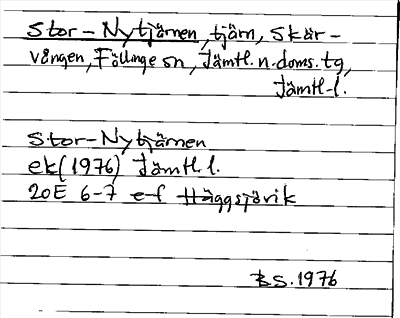 Stor-Nytjärnen, tjärn, Skär-
vången, Föllinge sn, Jämtl. n. doms. tg,
Jämtl. l.
Stor-Nytjärnen
ek (1976) Jämtl. l.
20E 6-7 e-f Häggsjövik
B.S. 1976